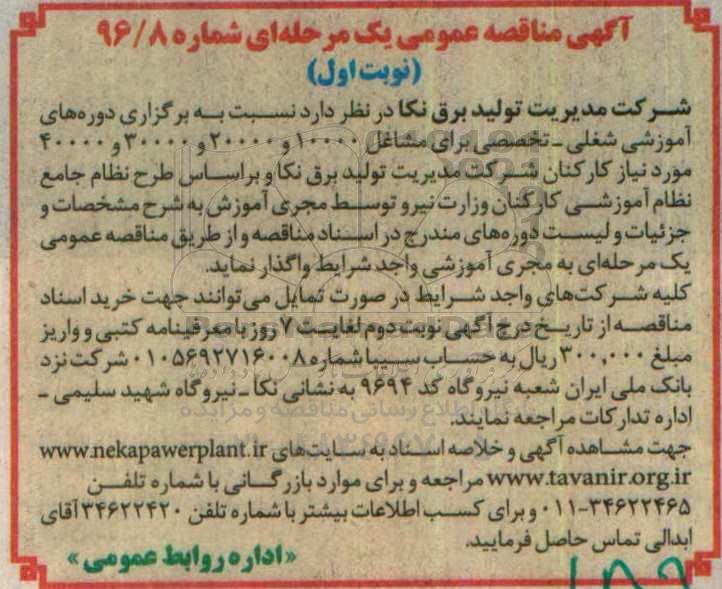 آگهی مناقصه عمومی یک مرحله‌ای شماره ۹۶/۸
(نوبت اول)
شرکت مدیریت تولید برق نکا در نظر دارد نسبت به برگزاری دوره‌های
آموزشی شغلی ـ تخصصی برای مشاغل ۱۰۰۰۰ و ۲۰۰۰۰ و ۳۰۰۰۰ و ۴۰۰۰۰
مورد نیاز کارکنان شرکت مدیریت تولید برق نکا و براساس طرح نظام جامع
نظام آموزشی کارکنان وزارت نیرو توسط مجری آموزش به شرح مشخصات و
جزئیات و لیست دوره‌های مندرج در اسناد مناقصه و از طریق مناقصه عمومی
یک مرحله‌ای به مجری آموزشی واجد شرایط واگذار نماید.
کلیه شرکت‌های واجد شرایط در صورت تمایل می‌توانند جهت خرید اسناد
مناقصه از تاریخ درج آگهی نوبت دوم لغایت ۷ روز با معرفینامه کتبی و واریز
مبلغ ۳۰۰,۰۰۰ ریال به حساب سیبا شماره ۰۱۰۵۶۹۲۷۱۶۰۰۸ شرکت نزد
بانک ملی ایران شعبه نیروگاه کد ۹۶۹۴ به نشانی نکا ـ نیروگاه شهید سلیمی ـ
اداره تدارکات مراجعه نمایند.
جهت مشاهده آگهی و خلاصه اسناد به سایت‌های www.nekapawerplant.ir
www.tavanir.org.ir مراجعه و برای موارد بازرگانی با شماره تلفن
۰۱۱-۳۴۶۲۲۴۶۵ و برای کسب اطلاعات بیشتر با شماره تلفن ۳۴۶۲۲۴۲۰ آقای
ابدالی تماس حاصل فرمایید.
«اداره روابط عمومی»